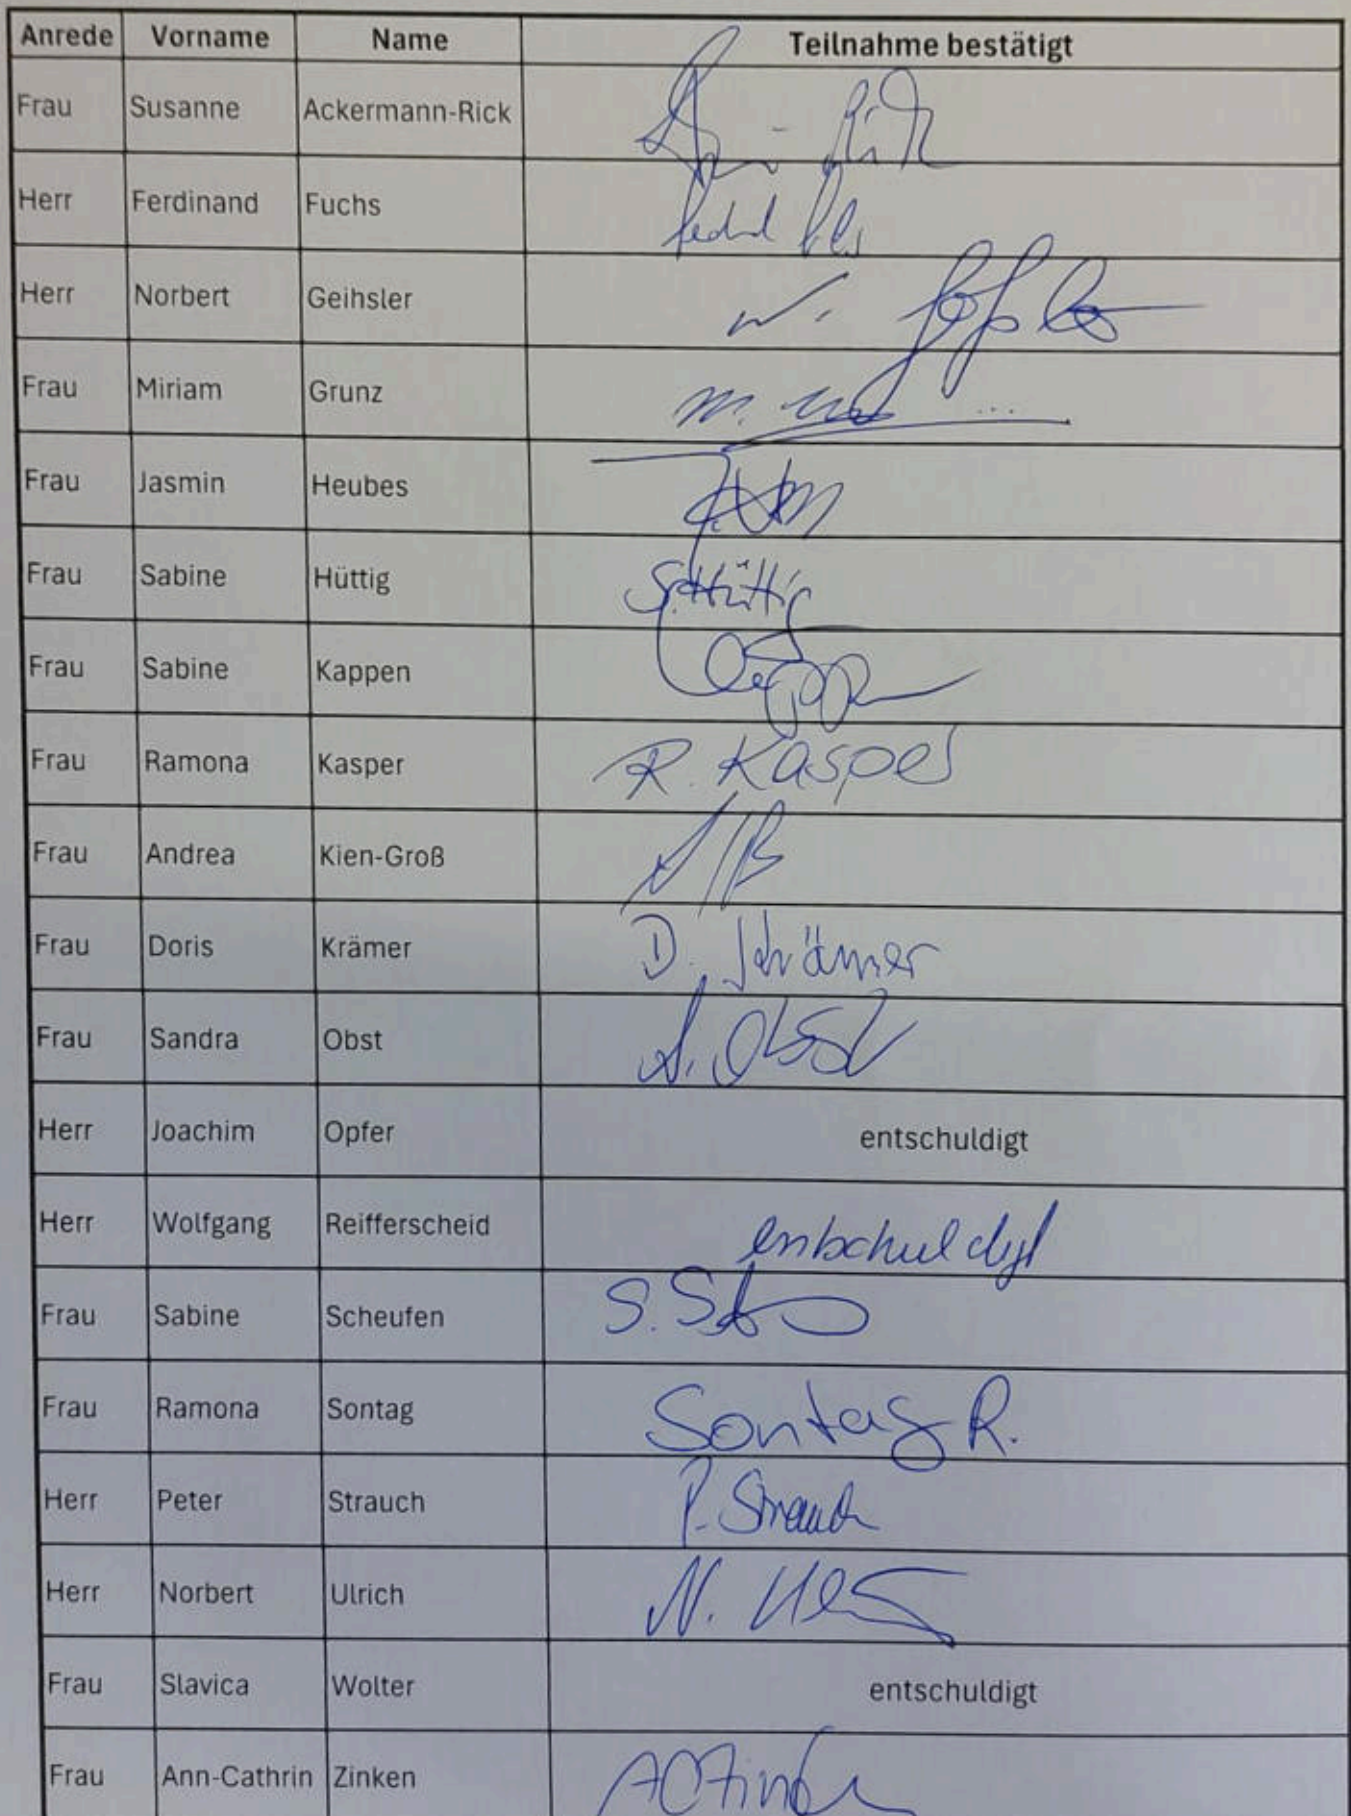 Anrede Vorname Name Teilnahme bestätigt
Frau Susanne Ackermann-Rick
Herr Ferdinand Fuchs
Herr Norbert Geihsler
Frau Miriam Grunz
Frau Jasmin Heubes
Frau Sabine Hüttig S. Hüttig
Frau Sabine Kappen
Frau Ramona Kasper R. Kasper
Frau Andrea Kien-Groß
Frau Doris Krämer D. Krämer
Frau Sandra Obst S. Obst
Herr Joachim Opfer entschuldigt
Herr Wolfgang Reifferscheid entschuldigt
Frau Sabine Scheufen
Frau Ramona Sontag Sontag R.
Herr Peter Strauch P. Strauch
Herr Norbert Ulrich
Frau Slavica Wolter entschuldigt
Frau Ann-Cathrin Zinken